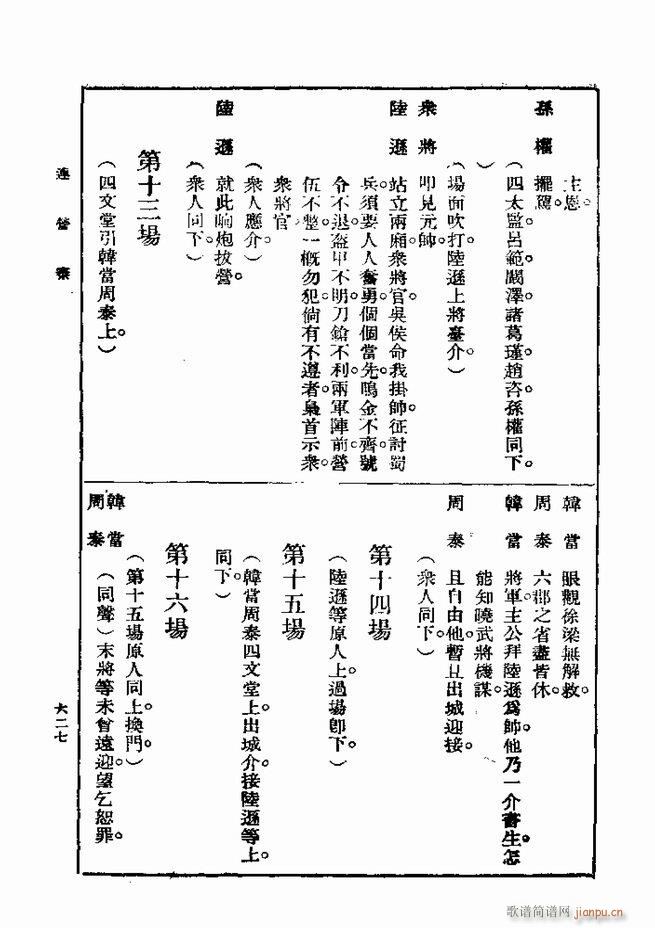 主恩。
孫權 擺駕。
（四太監呂範闞澤諸葛瑾趙咨孫權同下。
）
（場面吹打陸遜上將臺介）
衆將 叩見元帥。
陸遜 站立兩廂。衆將官。吳侯命我掛帥征討蜀
兵。須要人人奮勇。個個當先。鳴金不齊。號
令不退。盔甲不明。刀鎗不利。兩軍陣前。營
伍不整。一概勿犯。倘有不遵者。梟首示衆。
衆將官
（衆人應介）
陸遜 就此响炮拔營。
（衆人同下。）
第十三場
（四文堂引韓當周泰上。）
韓當 眼觀徐梁無解救。
周泰 六郡之省盡皆休。
韓當 將軍。主公拜陸遜爲帥。他乃一介書生。怎
能知曉武將機謀。
周泰 且自由他。暫且出城迎接。
（衆人同下。）
第十四場
（陸遜等原人上。過場卽下。）
第十五場
（韓當周泰四文堂上。出城介。接陸遜等上。
同下。）
第十六場
（第十五場原人同上。換門。）
韓當
周泰 （同聲）末將等未曾遠迎。望乞恕罪。
連營寨
六二七
歌谱简谱网 jianpu.cn